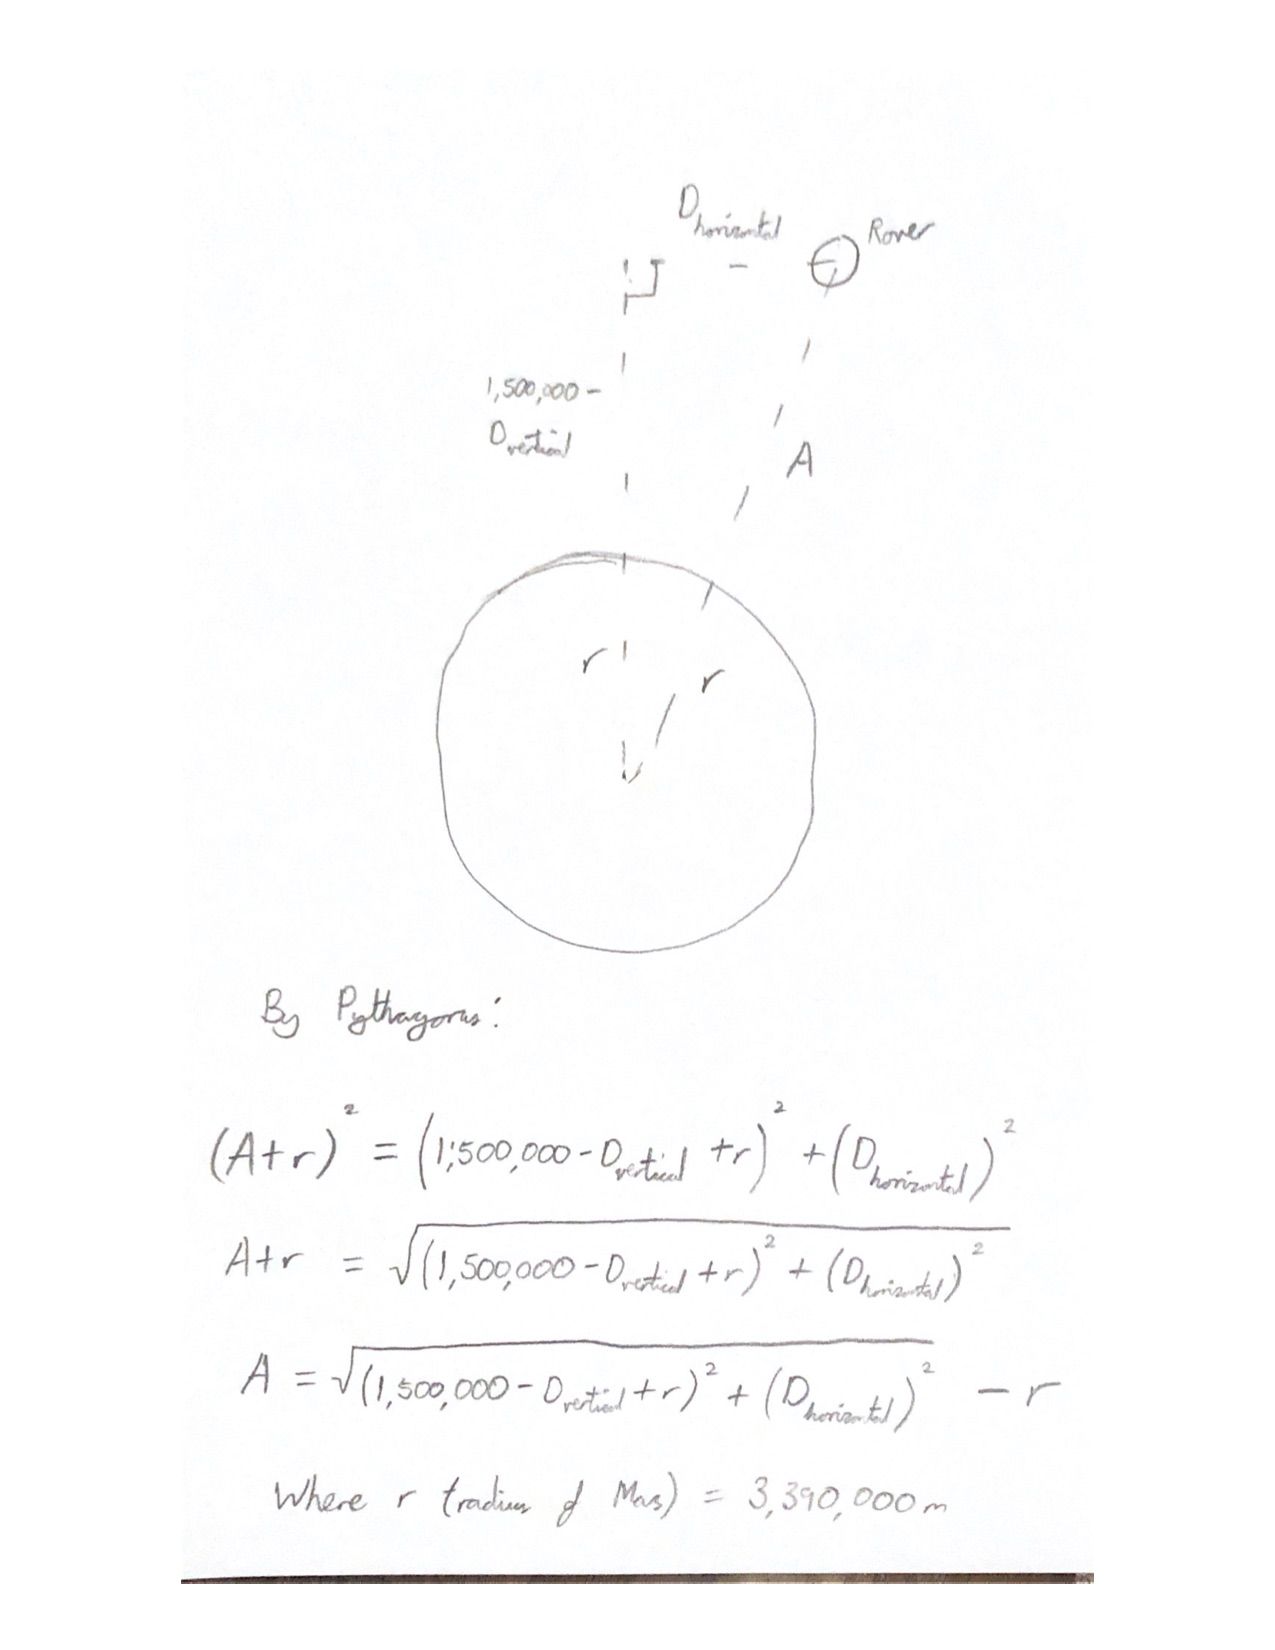 D horizontal
Rover
1,500,000 -
D vertical
A
r
r
By Pythagorus:
(A+r)² = (1,500,000 - D vertical + r)² + (D horizontal)²
A+r = √(1,500,000 - D vertical + r)² + (D horizontal)²
A = √(1,500,000 - D vertical + r)² + (D horizontal)² - r
Where r (radius of Mars) = 3,390,000m